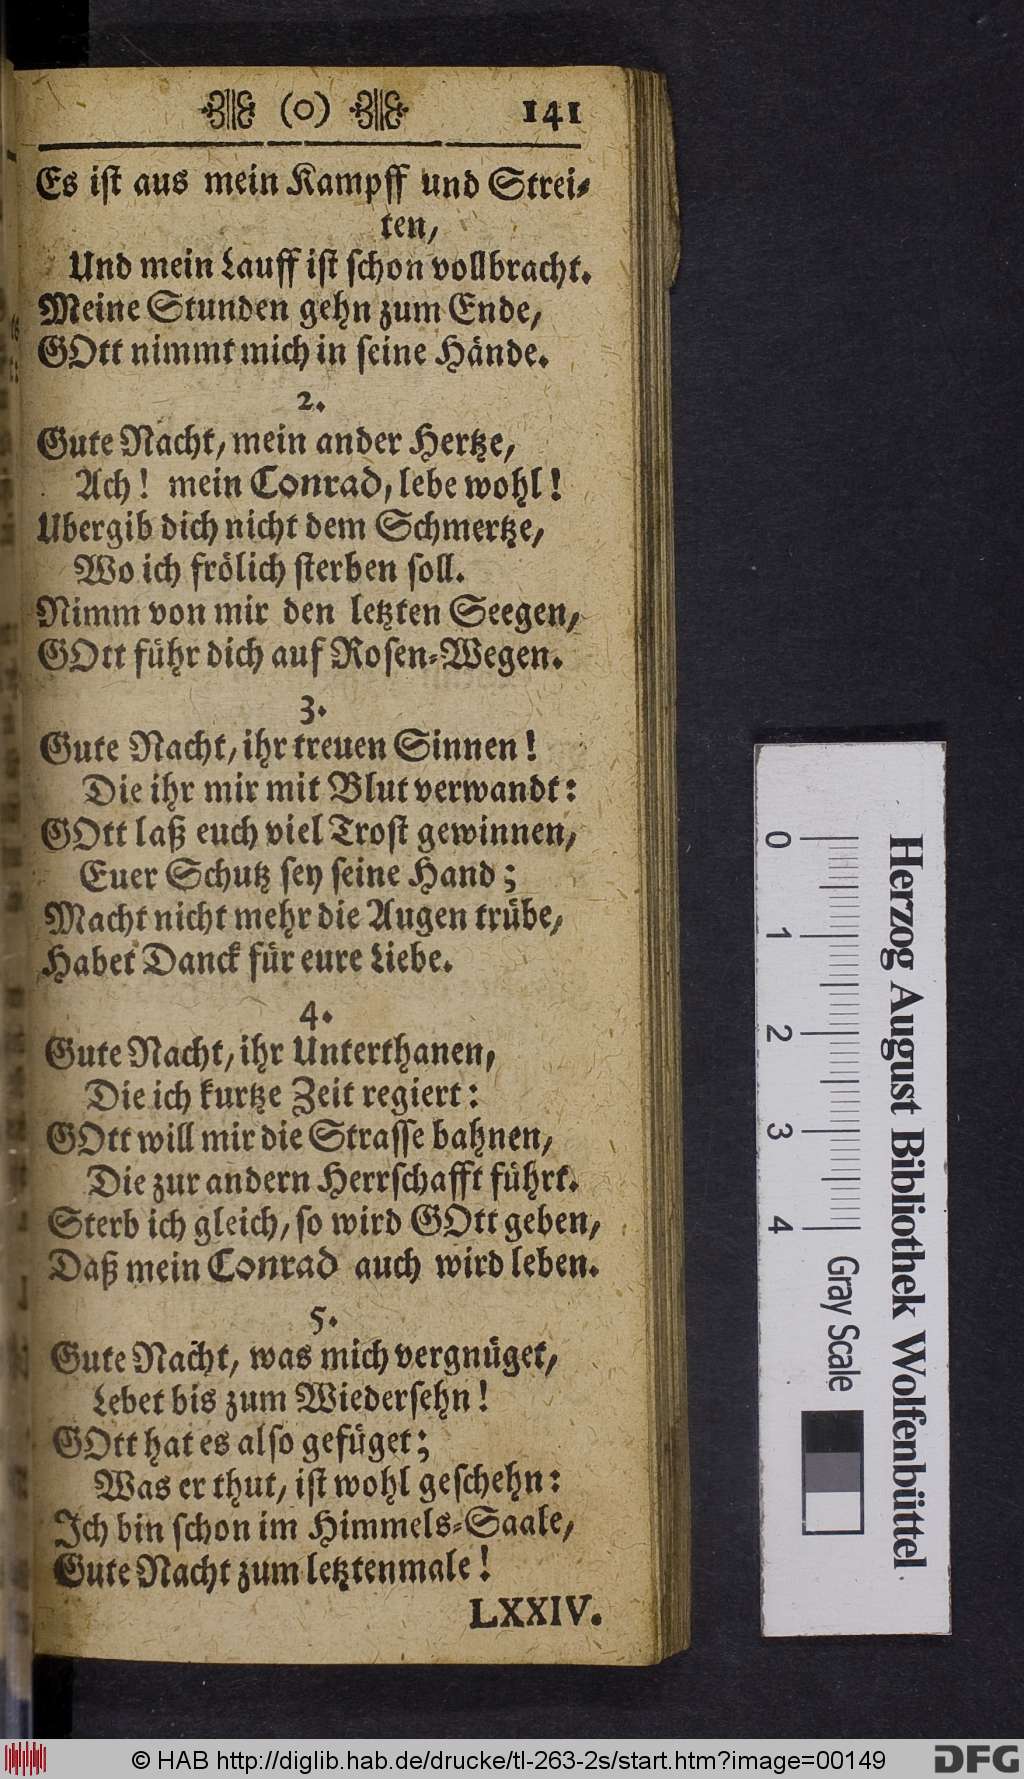 (o) 141
Es ist aus mein Kampff und Strei-
ten,
Und mein Lauff ist schon vollbracht.
Meine Stunden gehn zum Ende,
GOtt nimmt mich in seine Hände.
2.
Gute Nacht, mein ander Hertze,
Ach! mein Conrad, lebe wohl!
Ubergib dich nicht dem Schmertze,
Wo ich frölich sterben soll.
Nimm von mir den letzten Seegen,
GOtt führ dich auf Rosen-Wegen.
3.
Gute Nacht, ihr treuen Sinnen!
Die ihr mir mit Blut verwandt:
GOtt laß euch viel Trost gewinnen,
Euer Schutz sey seine Hand;
Macht nicht mehr die Augen trübe,
Habet Danck für eure Liebe.
4.
Gute Nacht, ihr Unterthanen,
Die ich kurtze Zeit regiert:
GOtt will mir die Strasse bahnen,
Die zur andern Herrschafft führt.
Sterb ich gleich, so wird GOtt geben,
Daß mein Conrad auch wird leben.
5.
Gute Nacht, was mich vergnüget,
Lebet bis zum Wiedersehn!
GOtt hat es also gefüget;
Was er thut, ist wohl geschehn:
Ich bin schon im Himmels-Saale,
Gute Nacht zum letztenmale!
LXXIV.
0 1 2 3 4 Gray Scale
Herzog August Bibliothek Wolfenbüttel
© HAB http://diglib.hab.de/drucke/tl-263-2s/start.htm?image=00149
DFG